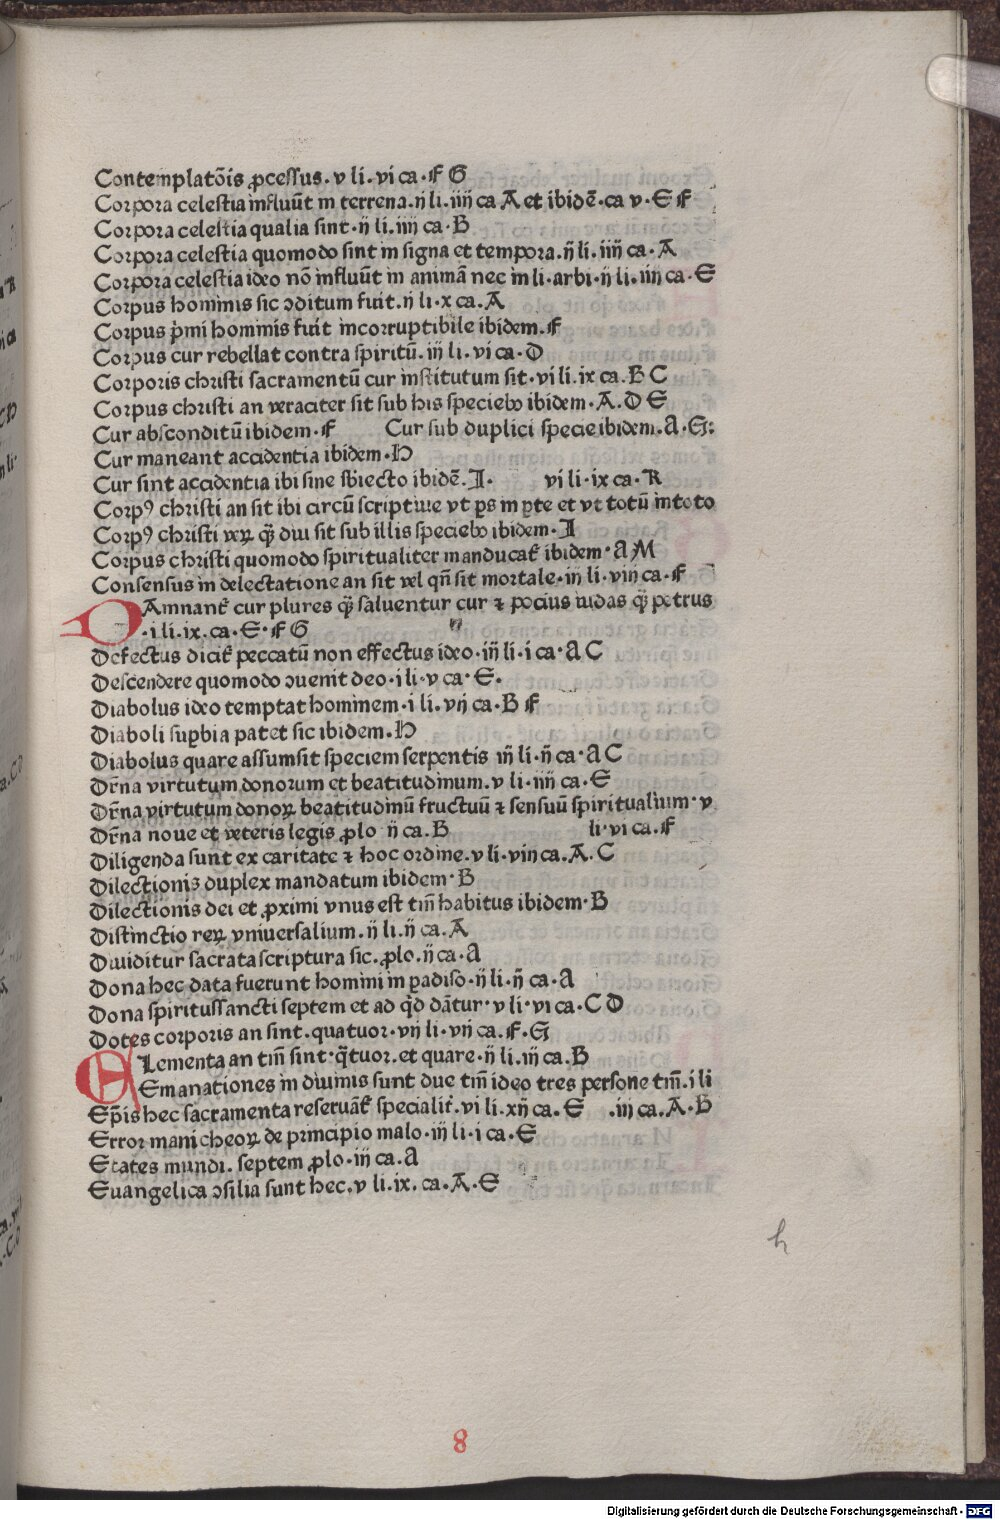 Contemplatōis ꝓcessus. v li. vi ca. F G
Corpora celestia influūt in terrena. ij li. iiij ca A et ibidē. ca v. E F
Corpora celestia qualia sint. ij li. iiij ca. B
Corpora celestia quomodo sint in signa et tempora. ij li. iiij ca. A
Corpora celestia ideo nō influūt in animā nec in li. arbi. ij li. iiij ca. E
Corpus hominis sic ↄditum fuit. ij li. x ca. A
Corpus p̄mi hominis fuit incorruptibile ibidem. F
Corpus cur rebellat contra spiritū. iij li. vi ca. D
Corporis christi sacramentū cur institutum sit. vi li. ix ca. B C
Corpus christi an veraciter sit sub his speciebꝫ ibidem. A. D E
Cur absconditū ibidem. F Cur sub duplici specie ibidem. A. G:
Cur maneant accidentia ibidem. H
Cur sint accidentia ibi sine sbiecto ibidē. I. vi li. ix ca. K
Corpꝰ christi an sit ibi circū scriptiue vt ps in pte et vt totū in toto
Corpꝰ christi verꝫ qꝫ diu sit sub illis speciebꝫ ibidem. I
Corpus christi quomodo spiritualiter manducat᷑ ibidem. A M
Consensus in delectatione an sit vel qn̄ sit mortale. iij li. viij ca. F
DAmnant᷑ cur plures qꝫ saluentur cur ⁊ pocius iudas qꝫ petrus
. i li. ix. ca. E. F G
Defectus dicit᷑ peccatū non effectus ideo. iij li. i ca. A C
Descendere quomodo ↄuenit deo. i li. v ca. E.
Diabolus ideo temptat hominem. i li. vij ca. B F
Diaboli suꝑbia patet sic ibidem. H
Diabolus quare assumsit speciem serpentis iij li. ij ca. A C
Dr̄na virtutum donorum et beatitudinum. v li. iiij ca. E
Dr̄na virtutum donoꝝ beatitudinū fructuū ⁊ sensuū spiritualium. v
Dr̄na noue et veteris legis ꝓlo ij ca. B li. vi ca. F
Diligenda sunt ex caritate ⁊ hoc ordine. v li. viij ca. A. C
Dilectionis duplex mandatum ibidem. B
Dilectionis dei et ꝓximi vnus est tm̄ habitus ibidem. B
Distinctio reꝝ vniuersalium. ij li. ij ca. A
Diuiditur sacrata scriptura sic. ꝓlo. ij ca. A
Dona hec data fuerunt homini in ꝑadiso. ij li. ij ca. A
Dona spiritussancti septem et ad qd̄ dātur. v li. vi ca. C D
Dotes corporis an sint. quatuor. vij li. vij ca. F. G
ELementa an tm̄ sint. q̄tuor. et quare. ij li. iij ca. B
Emanationes in diuinis sunt due tm̄ ideo tres persone tm̄. i li
Ep̄is hec sacramenta reseruāt᷑ specialit᷑. vi li. xij ca. E . iij ca. A. B
Error manicheoꝝ de principio malo. iij li. i ca. E
Etates mundi. septem ꝓlo. iij ca. A
Euangelica ↄsilia sunt hec. v li. ix. ca. A. E
h
8
Digitalisierung gefördert durch die Deutsche Forschungsgemeinschaft - DFG